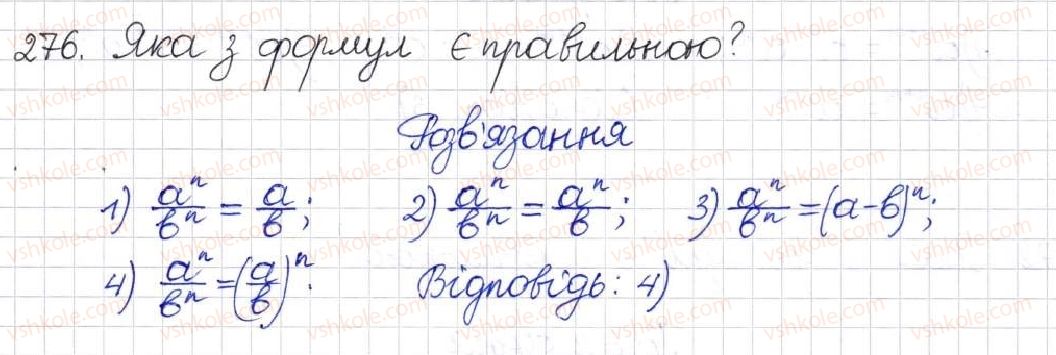 276. Яка з формул є правильною?
Розв'язання
1) aⁿ/вⁿ = a/в; 2) aⁿ/вⁿ = aⁿ/в; 3) aⁿ/вⁿ = (a-в)ⁿ;
4) aⁿ/вⁿ = (a/в)ⁿ. Відповідь: 4)
vshkole.com